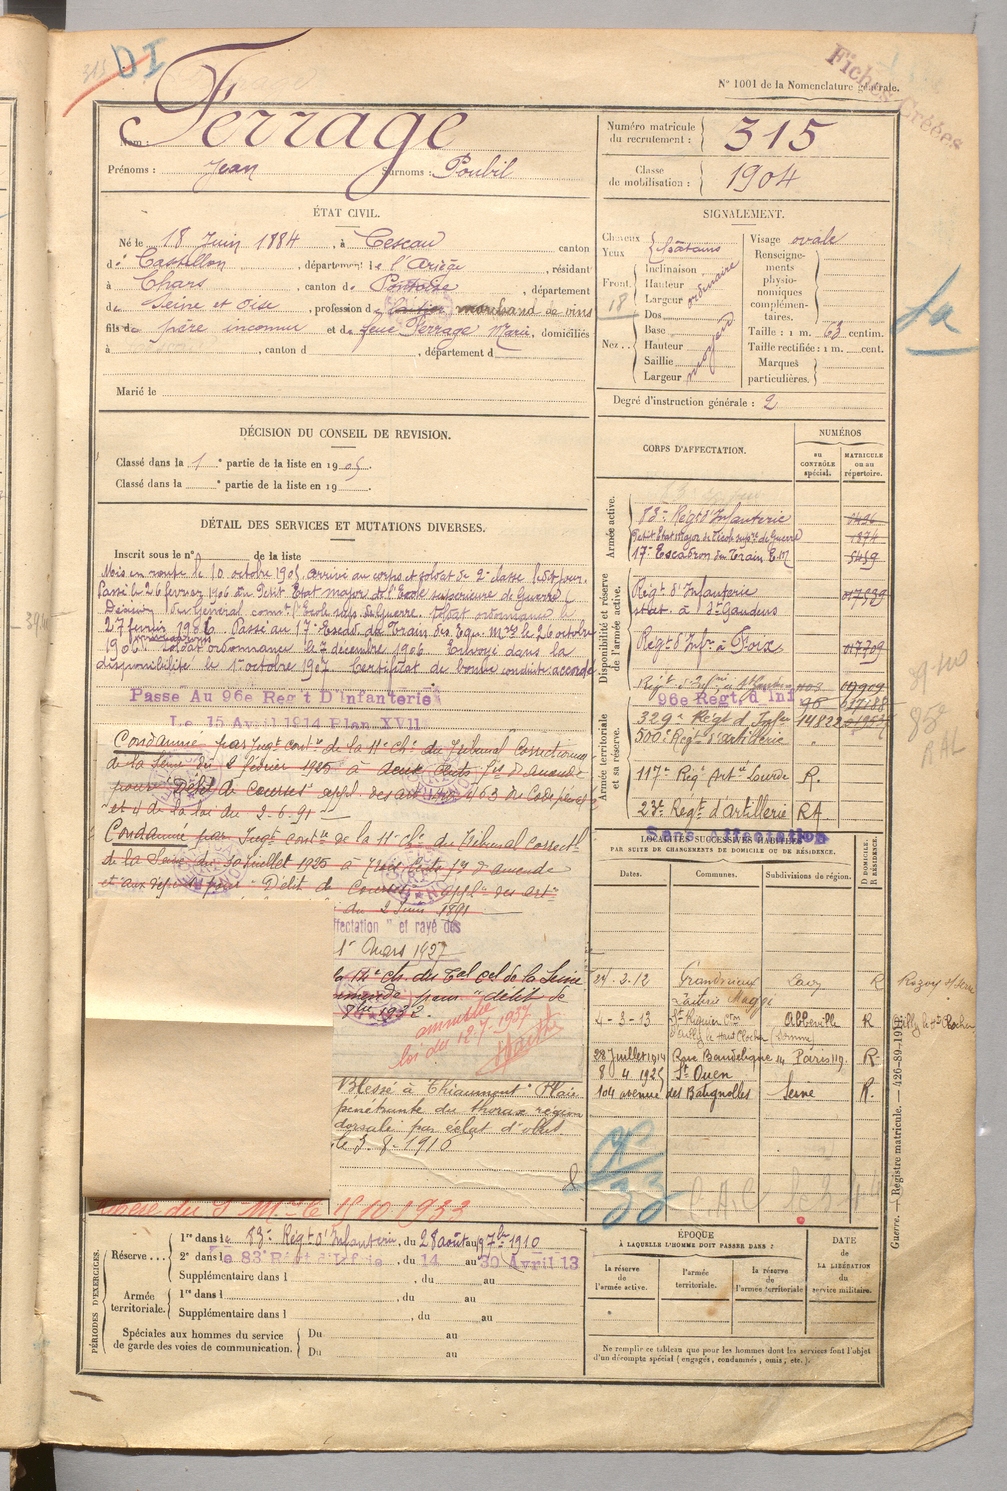 315 DI
Fiches Créées
N° 1001 de la Nomenclature générale.
Nom : Ferrage
Prénoms : Jean Surnoms : Poubil
Numéro matricule du recrutement : 315
Classe de mobilisation : 1904
ÉTAT CIVIL.
Né le 18 Juin 1884, à Cescau canton
de Castillon, département de l'Ariège, résidant
à Chars, canton de Pontoise, département
de Seine et Oise, profession de laitier marchand de vins
fils de père inconnu et de feue Ferrage Marie, domiciliés
à , canton d , département d
Marié le
SIGNALEMENT.
Cheveux
Yeux
châtains
Front.
18
Inclinaison
Hauteur
Largeur
ordinaire
Nez..
Dos
Base
Hauteur
Saillie
Largeur
moyen
Visage ovale
Renseignements physionomiques complémentaires.
Taille : 1 m. 63 centim.
Taille rectifiée : 1 m. cent.
Marques particulières.
Degré d'instruction générale : 2
DÉCISION DU CONSEIL DE REVISION.
Classé dans la 1e partie de la liste en 1905.
Classé dans la e partie de la liste en 19 .
DÉTAIL DES SERVICES ET MUTATIONS DIVERSES.
Inscrit sous le n° de la liste
Mis en route le 10 octobre 1905 arrivé au corps et soldat de 2e classe ledit jour.
Passé le 26 février 1906 au Petit Etat major de l'Ecole supérieure de Guerre (
Décision du Général comt l'Ecole sup. de Guerre. Soldat ordonnance le
27 février 1906. Passé au 17e Escad. du Train des Equ. Mres le 26 octobre
1906. Soldat ordonnance le 7 décembre 1906. Envoyé dans la
disponibilité le 1er octobre 1907. Certificat de bonne conduite accordé
Passé Au 96e Reg t D'infanterie
Le 15 Avril 1914 Plan XVII
Condamné par Jugt contre de la 11e Ch. du Tribunal Correctionnel
de la Seine du 2 février 1925 à deux Cents frs d'amende
pour "Délit de Courses" appl. des art 463 du Code pénal
et 4 de la loi du 2.6.91
Condamné par Jugt contre de la 11e Ch. du Tribunal Correctl
de la Seine du 30 Juillet 1925 à Trois Cents frs d'amende
et aux dépens pour "Délit de Courses" appl. des arts
du 2 Juin 1891
ffectation " et rayé des
1er mars 1927
la 14e ch. du Tal cel de la Seine
amende pour "délit de
1932.
amnistie
loi du 12.7.1937
Blessé à Thiaumont "Plaie
pénétrante du thorax région
dorsale par éclat d'obus
le 3-8-1916
15.10.1933
CORPS D'AFFECTATION.
NUMÉROS
au CONTRÔLE spécial.
MATRICULE ou au répertoire.
Armée active.
83e Régt d'Infanterie
Petit Etat Major de l'Ecole supre de Guerre 1874
17e Escadron du Train E.M 5459
Disponibilité et réserve de l'armée active.
Régt d'Infanterie
stat. à St Gaudens
Régt d'Infie à Foix
96e Reg t d'inf 96
Armée territoriale et sa réserve.
329e Régt d'Infie 14822
500e Régt d'artillerie "
117e Régt Art. Lourde R.
23e Régt d'Artillerie RA
Sans Affectation
85e RAL
LOCALITÉS SUCCESSIVES HABITÉES
PAR SUITE DE CHANGEMENTS DE DOMICILE OU DE RÉSIDENCE.
Dates. Communes. Subdivisions de région. D DOMICILE. R RÉSIDENCE.
24-3-12 Grandrieux Laon R Rozoy s/ Serre
Laiterie Maggi
4-3-13 St Riquier Abbeville R Ailly le Ht Clocher
d'Ailly le Haut Clocher (Somme)
28 Juillet 1914 Rue Baudelique 14 Paris R
8 4 1925 St Ouen
104 avenue des Batignolles Seine R.
C.A.C
PÉRIODES D'EXERCICES.
Réserve...
1re dans le 83e Régt d'Infanterie, du 28 août au 7bre 1910
2e dans le 83e Régt d'Infie, du 14 au 30 Avril 13
Supplémentaire dans l , du au
Armée territoriale.
1re dans l , du au
Supplémentaire dans l , du au
Spéciales aux hommes du service de garde des voies de communication.
Du au
Du au
ÉPOQUE
À LAQUELLE L'HOMME DOIT PASSER DANS :
la réserve de l'armée active.
l'armée territoriale.
la réserve de l'armée territoriale
DATE de LA LIBÉRATION du service militaire.
Ne remplir ce tableau que pour les hommes dont les services font l'objet
d'un décompte spécial (engagés, condamnés, omis, etc.).
Guerre. — Registre matricule. — 426-89-1910.